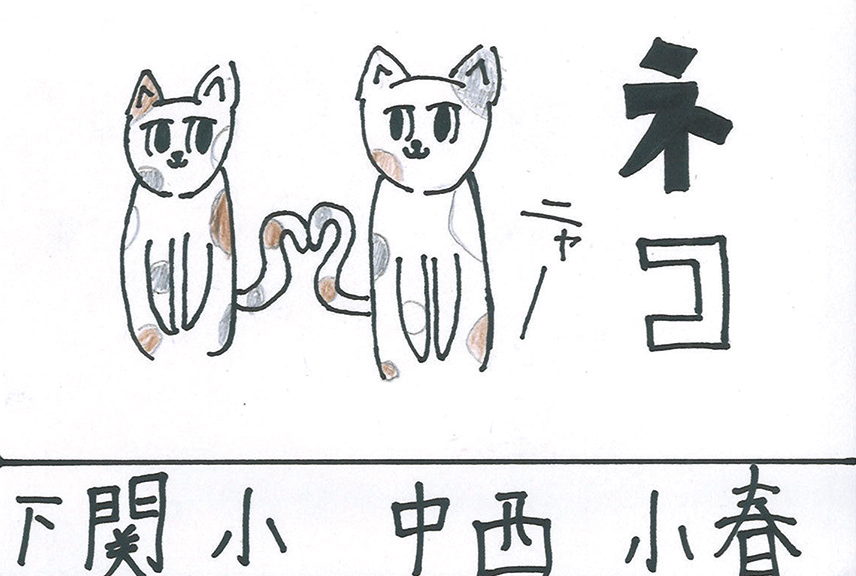 ネコ
ニャー
下関小 中西 小春